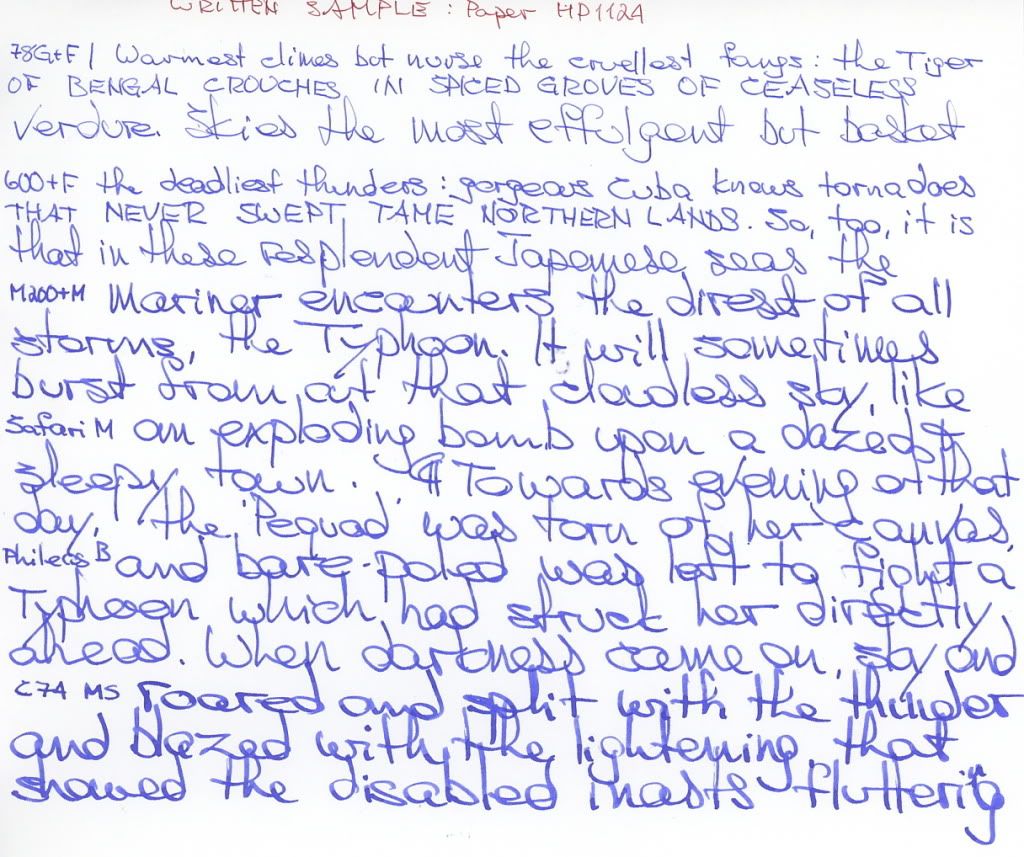 WRITTEN SAMPLE : Paper HP1124
78G+F | Warmest climes but nurse the cruellest fangs : the Tiger
OF BENGAL CROUCHES IN SPICED GROVES OF CEASELESS
verdure. Skies the most effulgent but basket
600+F the deadliest thunders : gorgeous Cuba knows tornadoes
THAT NEVER SWEPT TAME NORTHERN LANDS. So, too, it is
that in these resplendent Japenese seas the
M200+M Mariner encounters the direst of all
storms, the Typhoon. It will sometimes
burst from out that cloudless sky, like
Safari M an exploding bomb upon a dazed &
sleepy town. ¶ Towards evening of that
day, the 'Pequod' was torn of her canvas,
Phileas B and bare-poled was left to fight a
Typhoon which had struck her directly
ahead. When darkness came on, sky and
C74 MS roared and split with the thunder
and blazed with the lightening, that
showed the disabled masts fluttering